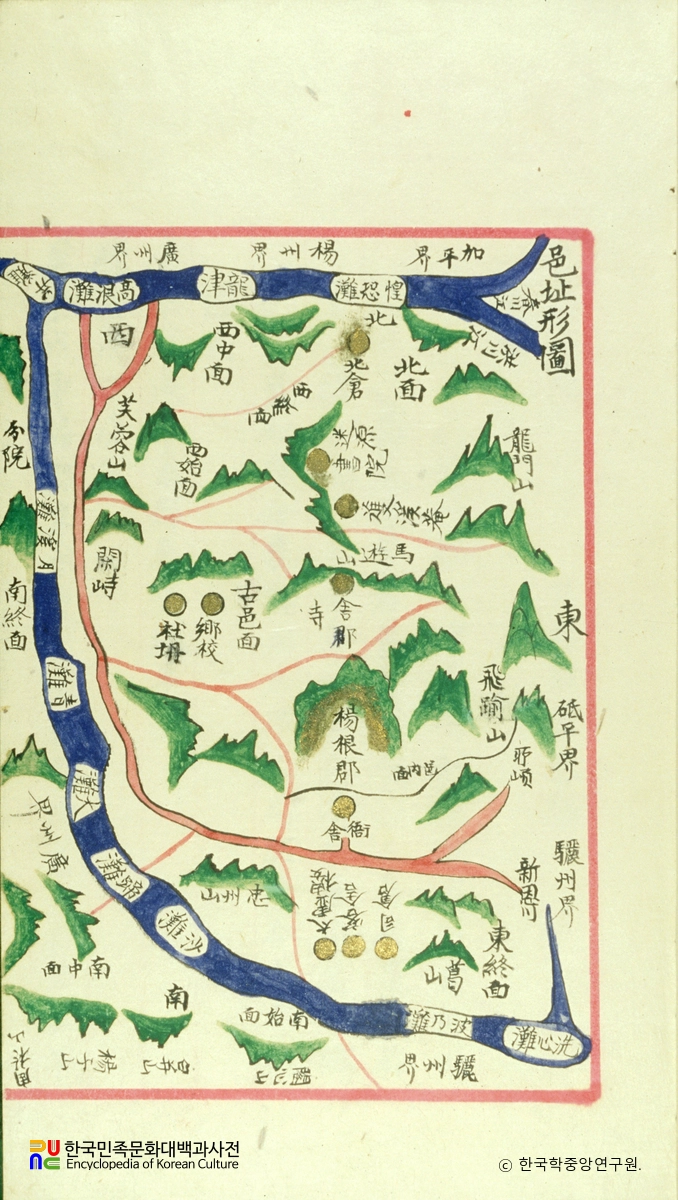 邑址形圖
加平界
楊州界
廣州界
惶恐灘
龍津
高浪灘
北
北倉
北面
西中面
西
西終面
龍門山
迷源書院
芙蓉山
西始面
分院
月溪灘
馬遊山
舍郡寺
古邑面
鄉校
社坍
南終面
東
砥平界
楊根郡
邑內面
青灘
大灘
廣州界
衙舍
驪州界
忠州山
司倉
客舍
沙灘
東終面
葛山
南中面
南
南始面
波乃灘
洗心灘
驪州界
楊子山
한국민족문화대백과사전
Encyclopedia of Korean Culture
ⓒ 한국학중앙연구원.